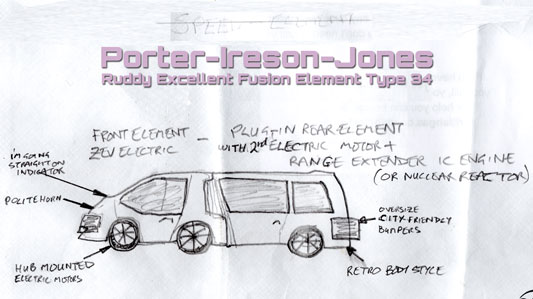 SPEED ELEMENT
Porter-Ireson-Jones
Ruddy Excellent Fusion Element Type 34
FRONT ELEMENT
ZEV ELECTRIC
—
PLUG-IN REAR ELEMENT
WITH 2nd ELECTRIC MOTOR +
RANGE EXTENDER IC ENGINE
(OR NUCLEAR REACTOR)
I'M GOING
STRAIGHT ON
INDICATOR
POLITE HORN
OVERSIZE
CITY-FRIENDLY
BUMPERS
HUB MOUNTED
ELECTRIC MOTORS
RETRO BODY STYLE